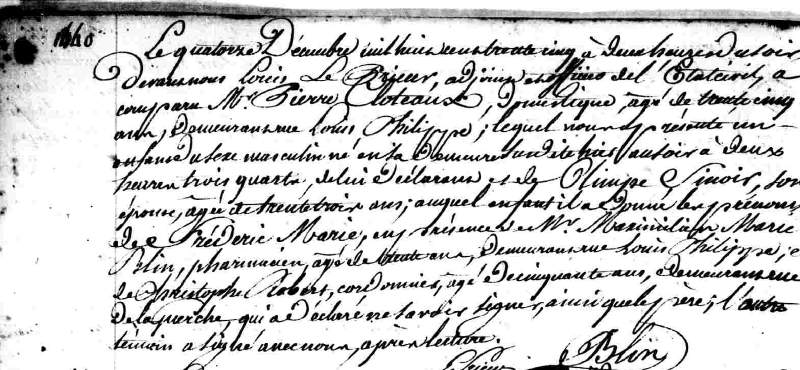 1140
Le quatorze Décembre mil huit cent trente cinq à deux heures du soir
Devant nous Louis Le Prieur, adjoint et officier de l'Etat civil, a
comparu Mr. Pierre Cloteaux, domestique, agé de trente cinq
ans, Demeurant rue Louis Philippe; lequel nous a présenté un
enfant du sexe masculin né en sa demeure susdite hier au soir à deux
heures trois quarts, de lui Déclarant et de Olimpe Sinoir, son
épouse, agée de trente trois ans; auquel enfant il a donné les prénoms
de Fréderic Marie, en présence de Mr. Maximilien Marie
Blin, pharmacien, agé de trente ans, Demeurant rue Louis Philippe, et
de Christophe Robert, cordonnier, agé de cinquante ans, demeurant rue
De la perche, qui a déclaré ne savoir signer, ainsi que le père; l'autre
témoin a signé avec nous, après lecture.
Blin